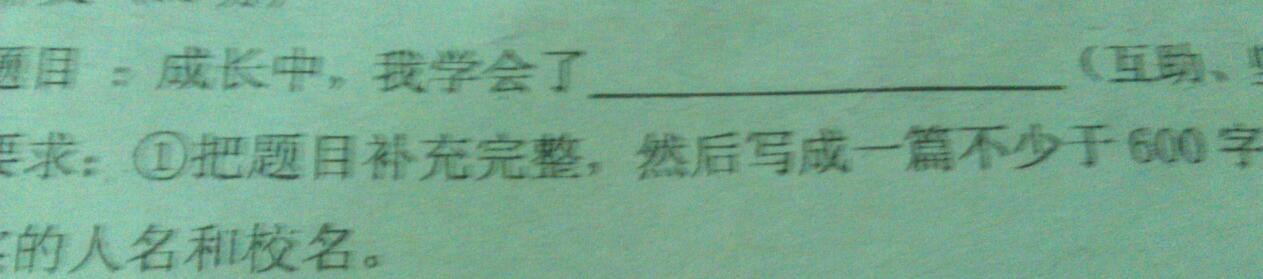 题目：成长中，我学会了__________（互助、
要求：①把题目补充完整，然后写成一篇不少于600字
的人名和校名。